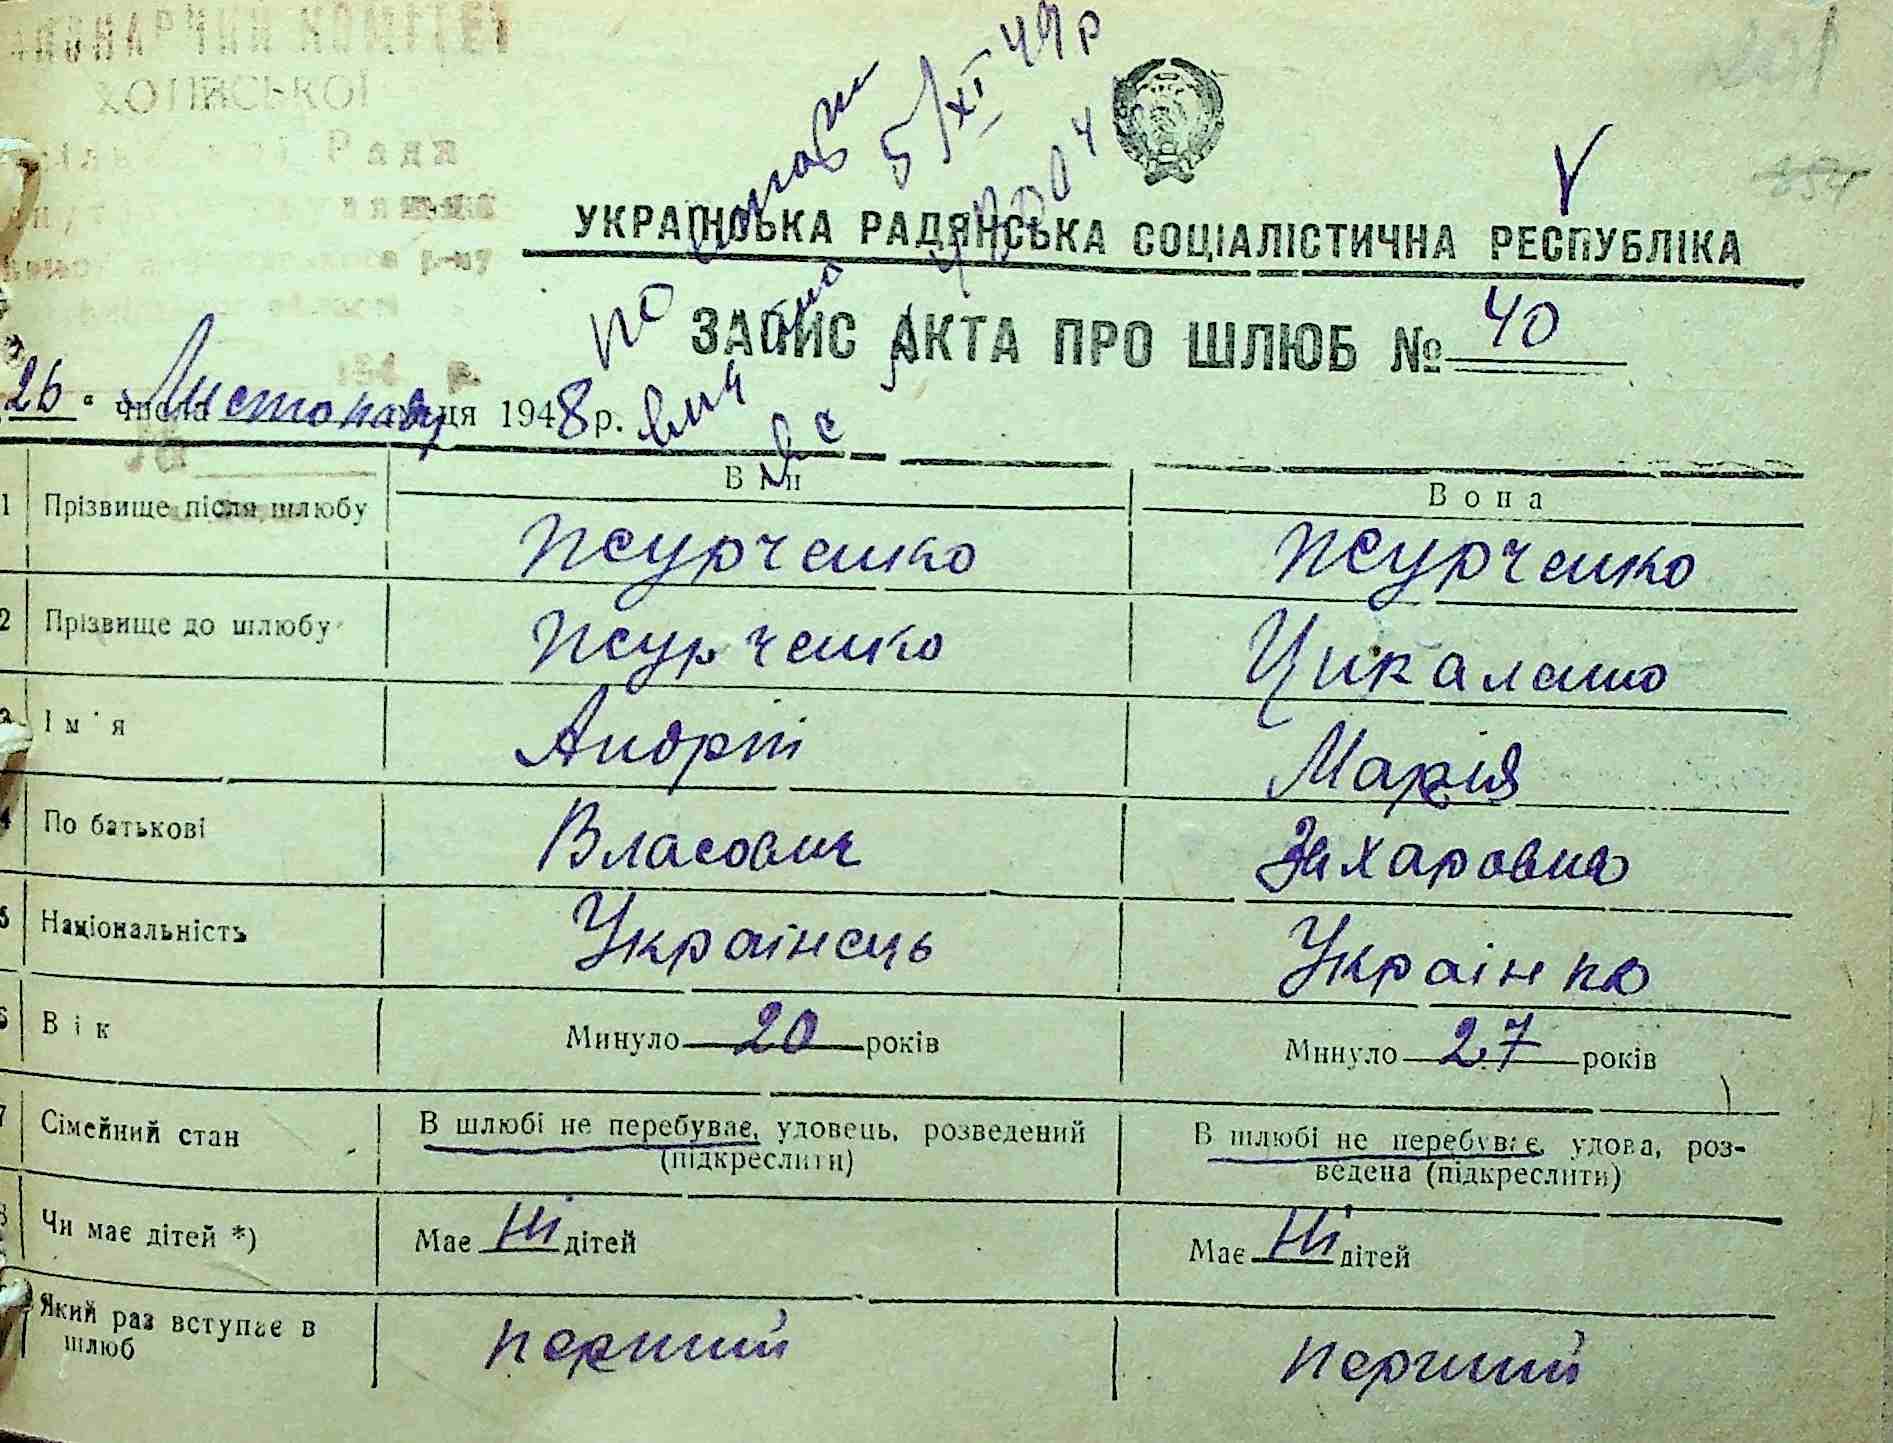 ХОТІЇВСЬКОЇ
Ради
р-ну
області
194 р.
5/XI 49 р
УКРАЇНСЬКА РАДЯНСЬКА СОЦІАЛІСТИЧНА РЕСПУБЛІКА
ЗАПИС АКТА ПРО ШЛЮБ № 40
26 " числа Листопаду місяця 1948 р.
Він Вона
1 Прізвище після шлюбу Журченко Журченко
2 Прізвище до шлюбу Журченко Цикаленко
3 Ім'я Андрій Марія
4 По батькові Власович Захаровна
5 Національність Українець Українка
6 Вік Минуло 20 років Минуло 27 років
7 Сімейний стан В шлюбі не перебуває, удовець, розведений (підкреслити) В шлюбі не перебуває, удова, роз-
ведена (підкреслити)
8 Чи має дітей *) Має Ні дітей Має Ні дітей
Який раз вступає в шлюб перший перший